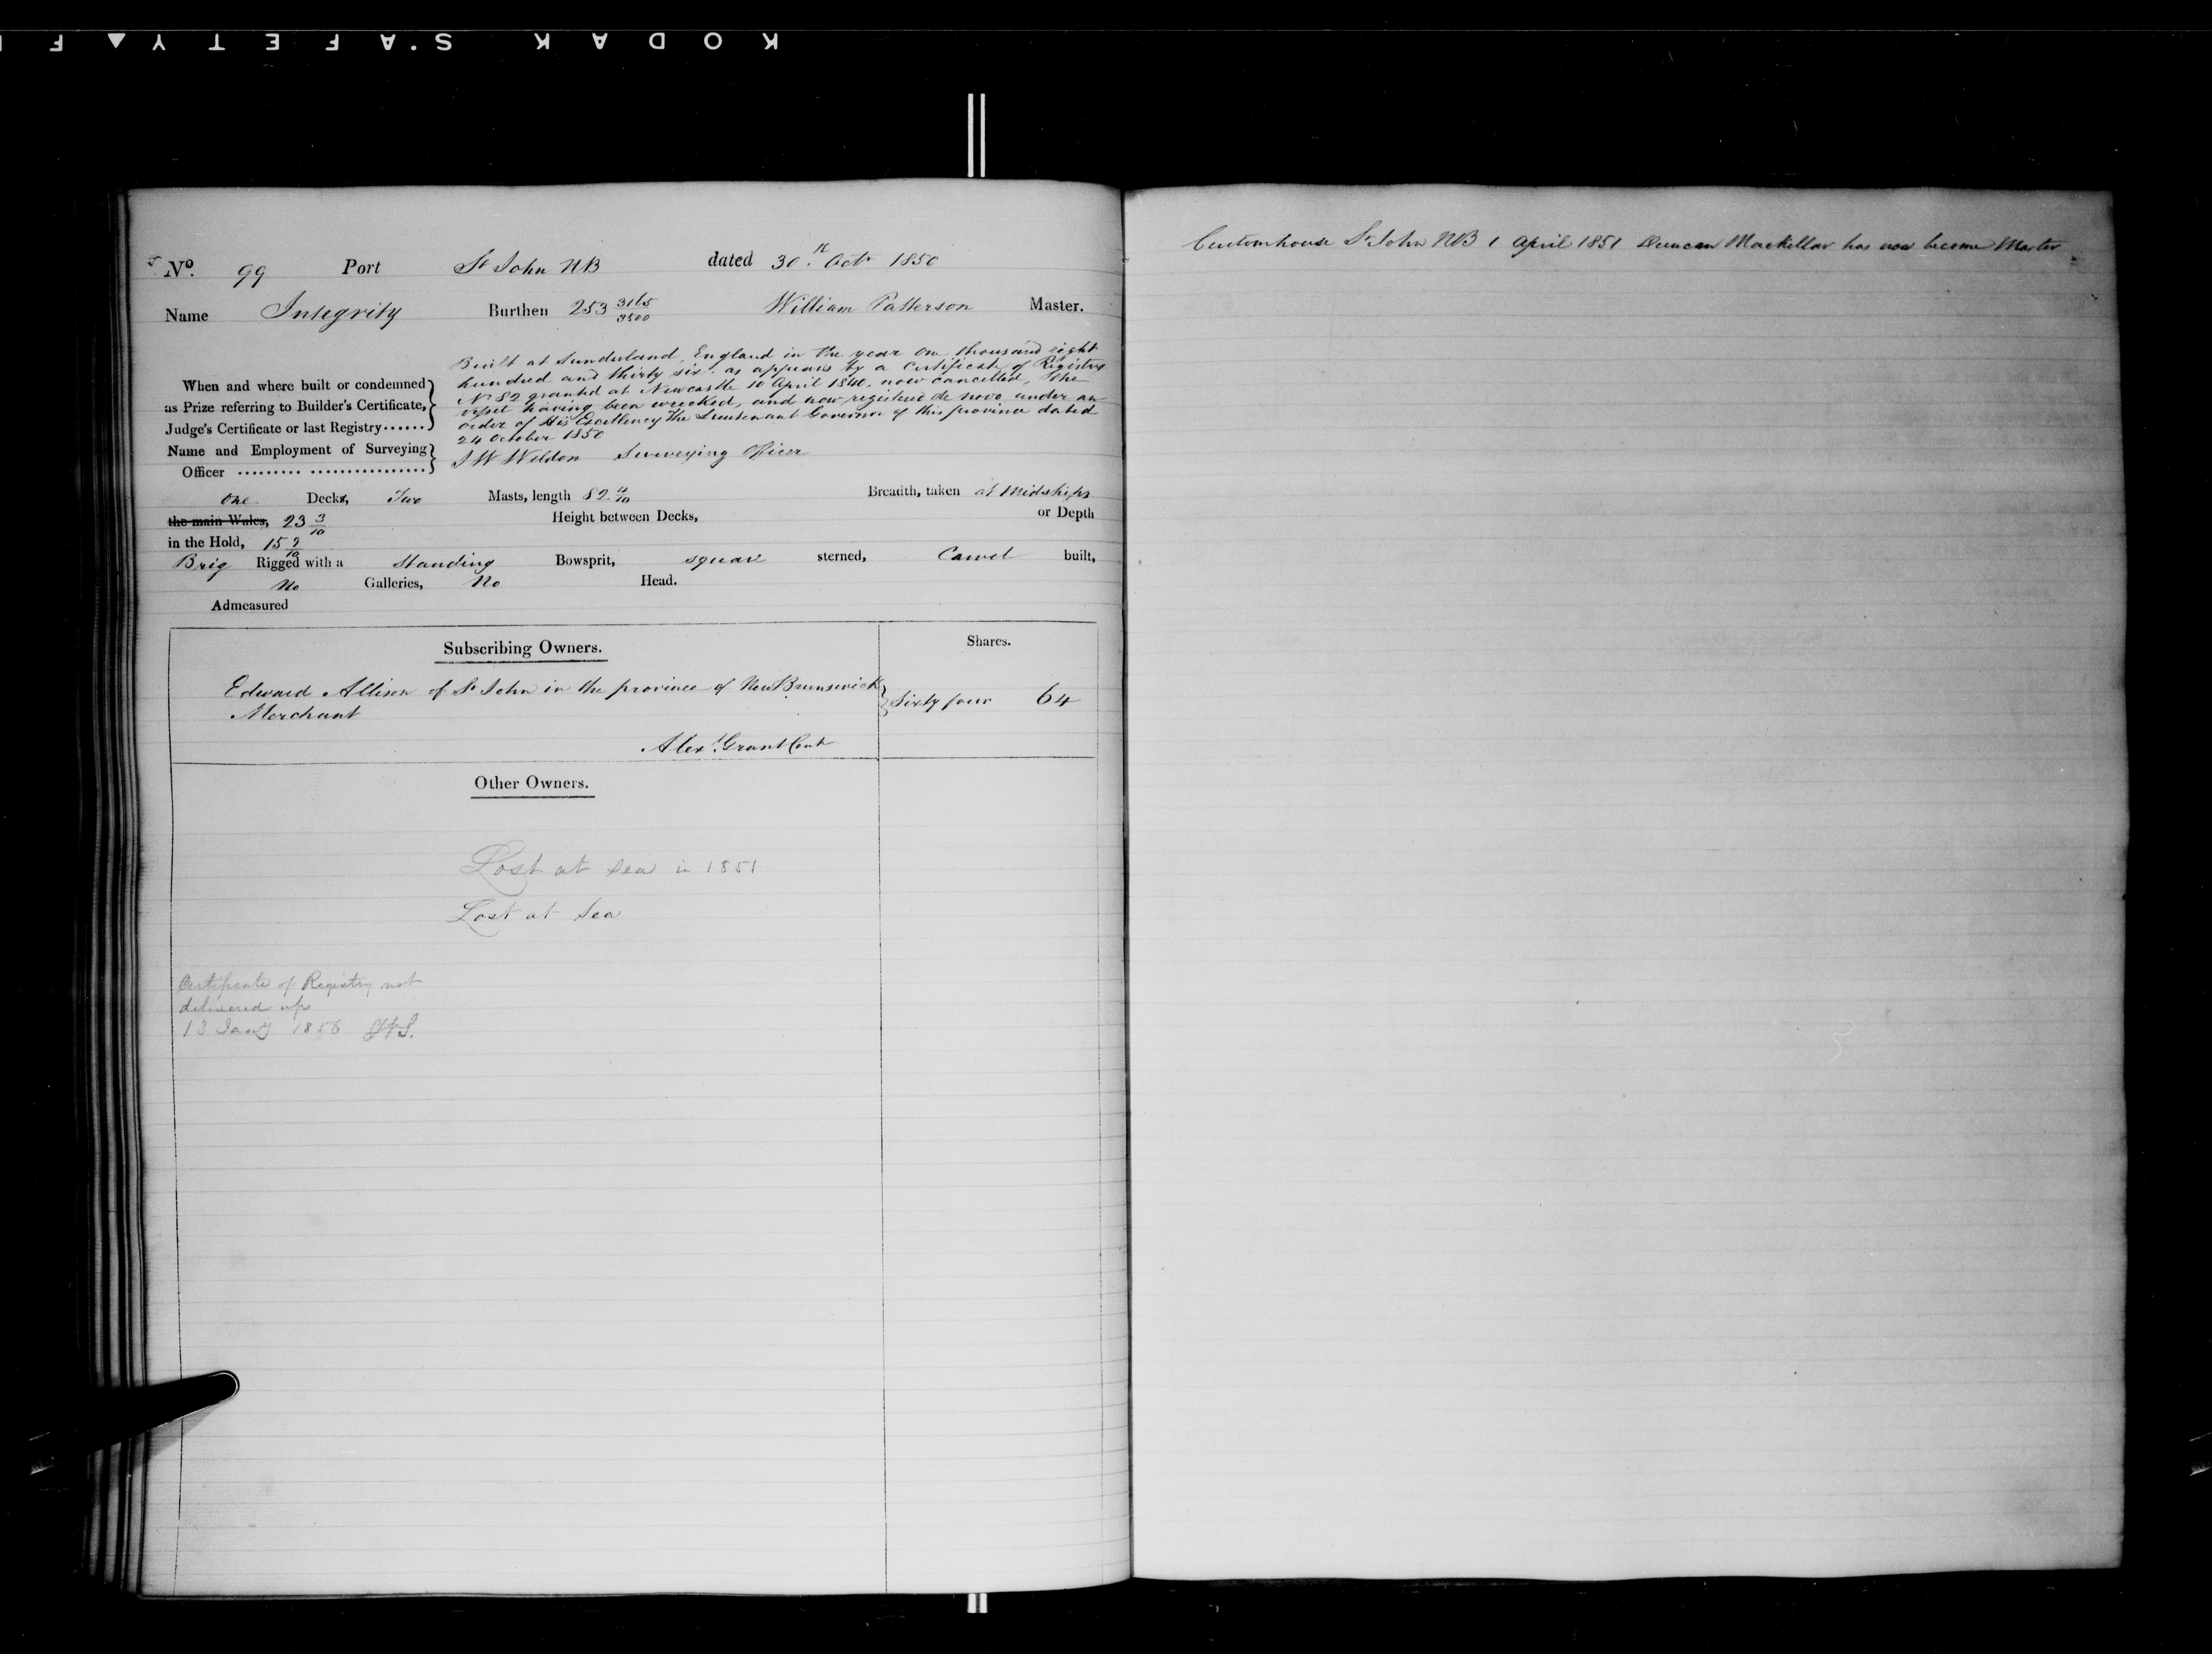 KODAK S'AFETY F
No. 99 Port St John NB dated 30th Octr 1850
Name Integrity Burthen 253 3165/3500 William Patterson Master.
When and where built or condemned as Prize referring to Builder's Certificate, Judge's Certificate or last Registry......
Built at Sunderland, England in the year One thousand eight
hundred and thirty six. as appears by a Certificate of Registry
No 82 granted at Newcastle 10 April 1840, now cancelled, The
vessel having been wrecked, and now registered de novo under an
order of His Excellency The Lieutenant Governor of this province dated
24 October 1850
Name and Employment of Surveying Officer
J W Weldon Surveying Officer
One Decks, Two Masts, length 82 4/10 Breadth, taken at Midships
the main Wales, 23 3/10 Height between Decks, or Depth
in the Hold, 15 9/10
Brig Rigged with a Standing Bowsprit, square sterned, Carvel built,
No Galleries, No Head.
Admeasured
Subscribing Owners. Shares.
Edward Allison of St John in the province of New Brunswick
Merchant Sixty four 64
Alexr Grant Cont
Other Owners.
Lost at Sea in 1851
Lost at Sea
Certificate of Registry not
delivered up
13 Jany 1856
Customhouse St John NB 1 April 1851 Duncan Mackellar has now become Master